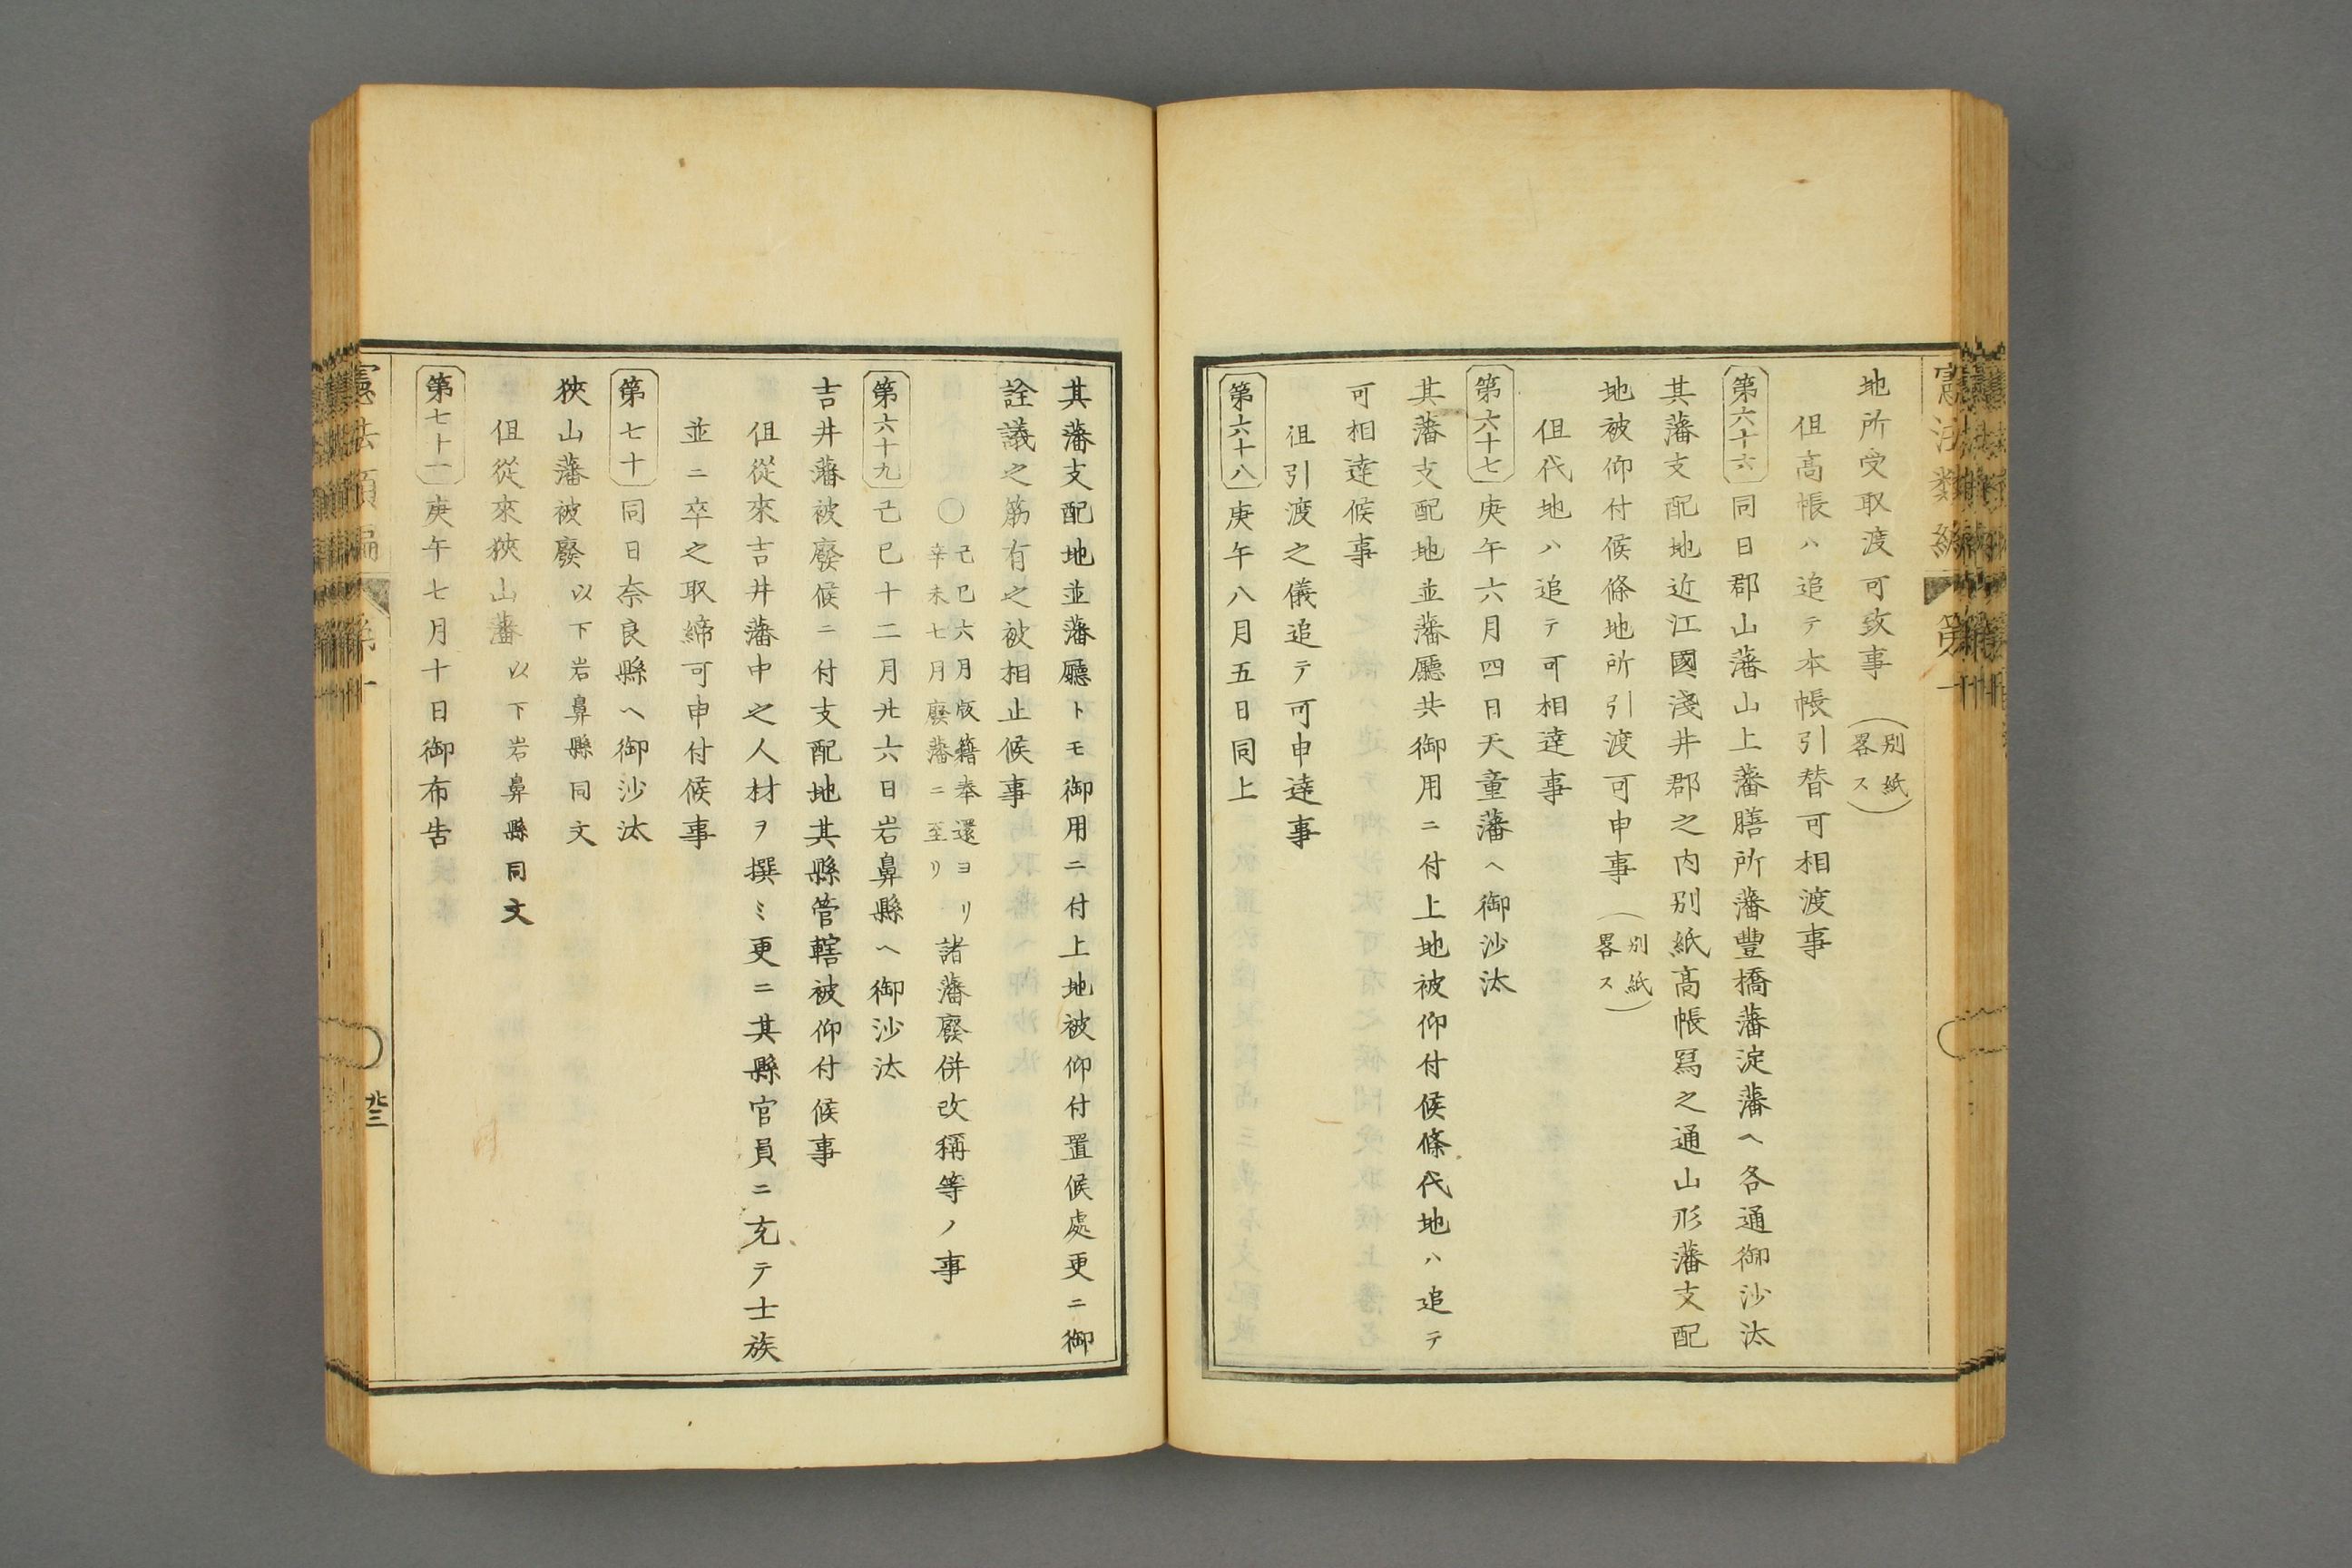 地所受取渡可致事（別紙畧ス）
但髙帳ハ追テ本帳引替可相渡事
第六十六 同日郡山藩山上藩膳所藩豐橋藩淀藩ヘ各通御沙汰
其藩支配地近江國淺井郡之内別紙髙帳冩之通山形藩支配
地被仰付候條地所引渡可申事（別紙畧ス）
但代地ハ追テ可相達事
第六十七 庚午六月四日天童藩ヘ御沙汰
其藩支配地並藩廳共御用ニ付上地被仰付候條代地ハ追テ
可相達候事
但引渡之儀追テ可申達事
第六十八 庚午八月五日同上
其藩支配地並藩廳トモ御用ニ付上地被仰付置候處更ニ御
詮議之筋有之被相止候事
〇己巳六月版籍奉還ヨリ辛未七月廢藩ニ至リ諸藩廢併改稱等ノ事
第六十九 己巳十二月廿六日岩鼻縣ヘ御沙汰
吉井藩被廢候ニ付支配地其縣管轄被仰付候事
但從來吉井藩中之人材ヲ撰ミ更ニ其縣官員ニ充テ士族
並ニ卒之取締可申付候事
第七十 同日奈良縣ヘ御沙汰
狹山藩被廢以下岩鼻縣同文
但從來狹山藩以下岩鼻縣同文
第七十一 庚午七月十日御布告
憲法類編
第一
廿三